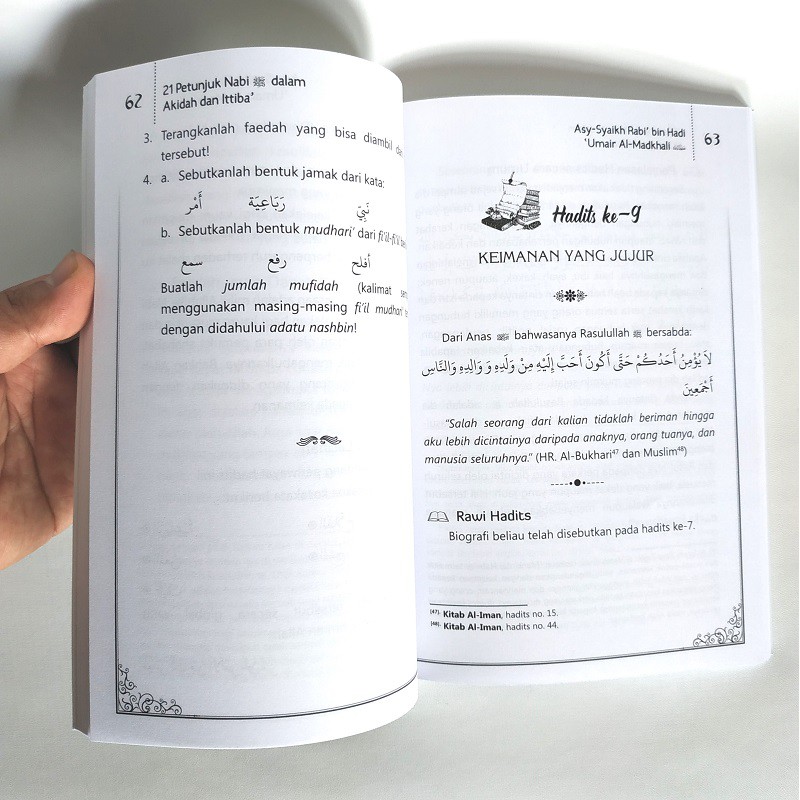 62
21 Petunjuk Nabi ﷺ dalam
Akidah dan Ittiba’
3. Terangkanlah faedah yang bisa diambil
tersebut!
4. a. Sebutkanlah bentuk jamak dari kata:
نَبِيّ رَبَاعِيَة أَمْر
b. Sebutkanlah bentuk mudhari’ dari fi’il-fi’il
أفلح رفع سمع
Buatlah jumlah mufidah (kalimat
menggunakan masing-masing fi’il mudhari’
dengan didahului adatu nashbin!
Asy-Syaikh Rabi’ bin Hadi
‘Umair Al-Madkhali
63
Hadits ke-9
KEIMANAN YANG JUJUR
Dari Anas bahwasanya Rasulullah ﷺ bersabda:
لَا يُؤْمِنُ أَحَدُكُمْ حَتَّى أَكُونَ أَحَبَّ إِلَيْهِ مِنْ وَلَدِهِ وَ وَالِدِهِ وَالنَّاسِ
أَجْمَعِينَ
“Salah seorang dari kalian tidaklah beriman hingga
aku lebih dicintainya daripada anaknya, orang tuanya, dan
manusia seluruhnya.” (HR. Al-Bukhari⁴⁷ dan Muslim⁴⁸)
Rawi Hadits
Biografi beliau telah disebutkan pada hadits ke-7.
[47]. Kitab Al-Iman, hadits no. 15.
[48]. Kitab Al-Iman, hadits no. 44.